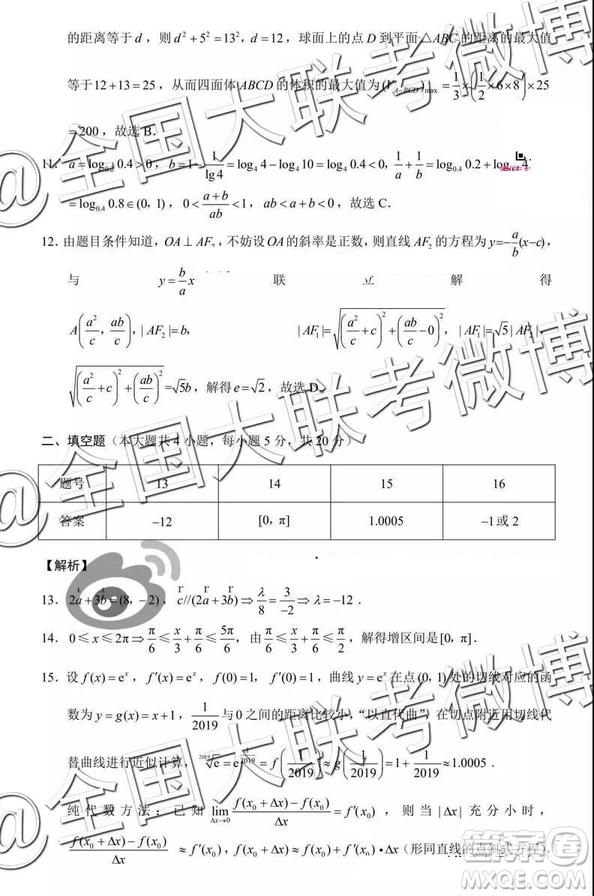 的距离等于 d，则 d²+5²=13²，d=12，球面上的点 D 到平面 △ABC 的距离的最大值
等于 12+13=25，从而四面体 ABCD 的体积的最大值为 (V_{A-BCD})_{max}=\frac{1}{3}×(\frac{1}{2}×6×8)×25
=200，故选 B．
11．a=log_{0.2}0.4>0，b=1-\frac{1}{lg4}=log_4 4-log_4 10=log_4 0.4<0，\frac{1}{a}+\frac{1}{b}=log_{0.4}0.2+log_{0.4}4
=log_{0.4}0.8∈(0，1)，0<\frac{a+b}{ab}<1，ab<a+b<0，故选 C．
12．由题目条件知道，OA⊥AF_2，不妨设 OA 的斜率是正数，则直线 AF_2 的方程为 y=-\frac{a}{b}(x-c)，
与 y=\frac{b}{a}x 联 立 解 得
A(\frac{a²}{c}，\frac{ab}{c})，|AF_2|=b， |AF_1|=\sqrt{(\frac{a²}{c}+c)²+(\frac{ab}{c}-0)²}，|AF_1|=\sqrt{5}|AF_2|
\sqrt{(\frac{a²}{c}+c)²+(\frac{ab}{c})²}=\sqrt{5}b，解得 e=\sqrt{2}，故选 D．
二、填空题（本大题共 4 小题，每小题 5 分，共 20 分）
题号 13 14 15 16
答案 -12 [0，π] 1.0005 -1 或 2
【解析】
13．2a+3b=(8，-2)，c//(2a+3b)⇒\frac{λ}{8}=\frac{3}{-2}⇒λ=-12．
14．0≤x≤2π⇒\frac{π}{6}≤\frac{x}{3}+\frac{π}{6}≤\frac{5π}{6}，由 \frac{π}{6}≤\frac{x}{3}+\frac{π}{6}≤\frac{π}{2}，解得增区间是 [0，π]．
15．设 f(x)=e^x，f′(x)=e^x，f(0)=1，f′(0)=1，曲线 y=e^x 在点 (0，1) 处的切线对应的函
数为 y=g(x)=x+1，\frac{1}{2019} 与 0 之间的距离比较小，“以直代曲”，在切点附近用切线代
替曲线进行近似计算，\sqrt[2019]{e}=e^{\frac{1}{2019}}=f(\frac{1}{2019})≈g(\frac{1}{2019})=1+\frac{1}{2019}≈1.0005．
纯代数方法：已知 \lim_{Δx→0}\frac{f(x_0+Δx)-f(x_0)}{Δx}=f′(x_0)，则当 |Δx| 充分小时，
\frac{f(x_0+Δx)-f(x_0)}{Δx}≈f′(x_0)，f(x_0+Δx)≈f(x_0)+f′(x_0)•Δx（形同直线的点斜式方程），
@全国大联考微博
@全国大联考微博
@全国大联考微博
答案圈